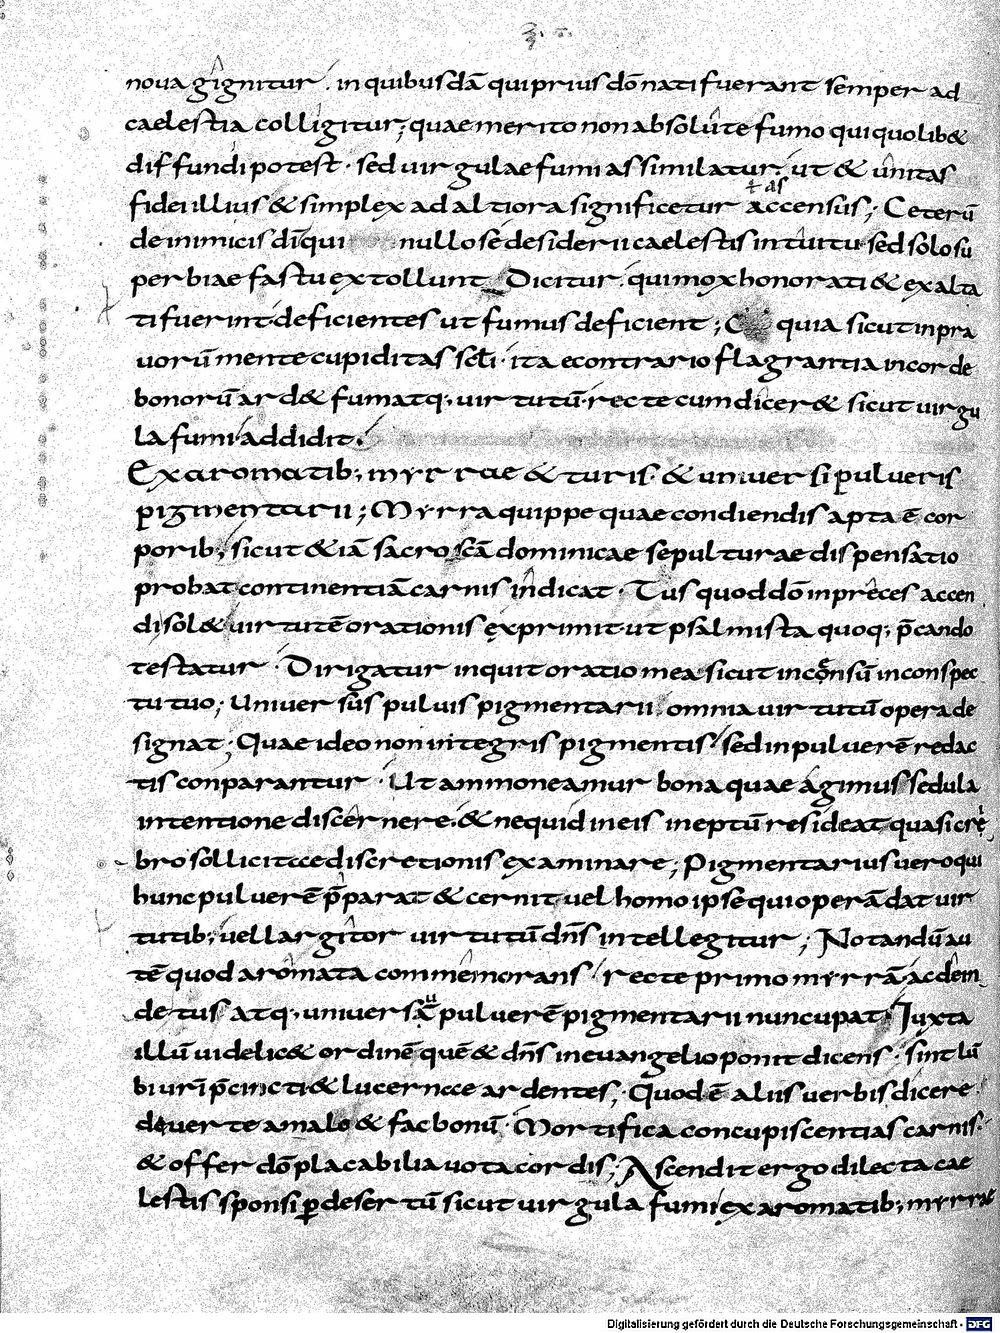 nova gignitur. in quibusdā qui prius dō nati fuerant semper ad
caelestia colligitur; quae merito non absolute fumo qui quolib&
diffundi potest. sed virgulae fumi assimilatur. ut & unitas
fidei illius & simplex ad altiora significetur accensus; Ceterū
ł as
de inimicis dī qui nullo se desiderii caelestis intuitu sed solo su
perbiae fastu extollunt Dicitur. qui mox honorati & exalta
ti fuerint deficientes ut fumus deficient; quia sicut in pra
vorū mente cupiditas sęcli. ita econtrario flagrantia in corde
bonorū ard& fumatq; virtutū. recte cum dicer& sicut virgu
la fumi addidit.
Ex aromatib; myrrae & turis. & universi pulveris
pigmentarii; Myrra quippe quae condiendis apta ē cor
porib; sicut & iā sacroscā dominicae sepulturae dispensatio
probat continentiā carnis indicat. Tus quod dō in preces accen
di sol& virtutē orationis exprimit ut psalmista quoq; p̄cando
testatur. Dirigatur inquit oratio mea sicut incensū in conspec
tu tuo; Universus pulvis pigmentarii. omnia virtutū opera de
signat; Quae ideo non integris pigmentis sed in pulverē redac
tis conparantur. Ut ammoneamur bona quae agimus sedula
intentione discernere. & nequid in eis ineptū resideat quasi cre
bro sollicitae discretionis examinare; Pigmentarius vero qui
hunc pulverē p̄parat & cernit vel homo ipse qui operā dat vir
tutib; vel largitor virtutū dn̄s intellegitur; Notandū au
tē quod aromata commemorans recte primo myrrā ac dein
de tus atq; universū pulverē pigmentarii nuncupat; Iuxta
illū videlic& ordinē quē & dn̄s in euangelio ponit dicens. sint lū
bi urī p̄cincti & lucernae ardentes; Quod ē aliis verbis dicere.
deverte a malo & fac bonū. Mortifica concupiscentias carnis.
& offer dō placabilia vota cordis; Ascendit ergo dilecta cae
lestis sponsi ꝑ desertū sicut virgula fumi ex aromatib; myrrae
Digitalisierung gefördert durch die Deutsche Forschungsgemeinschaft - DFG